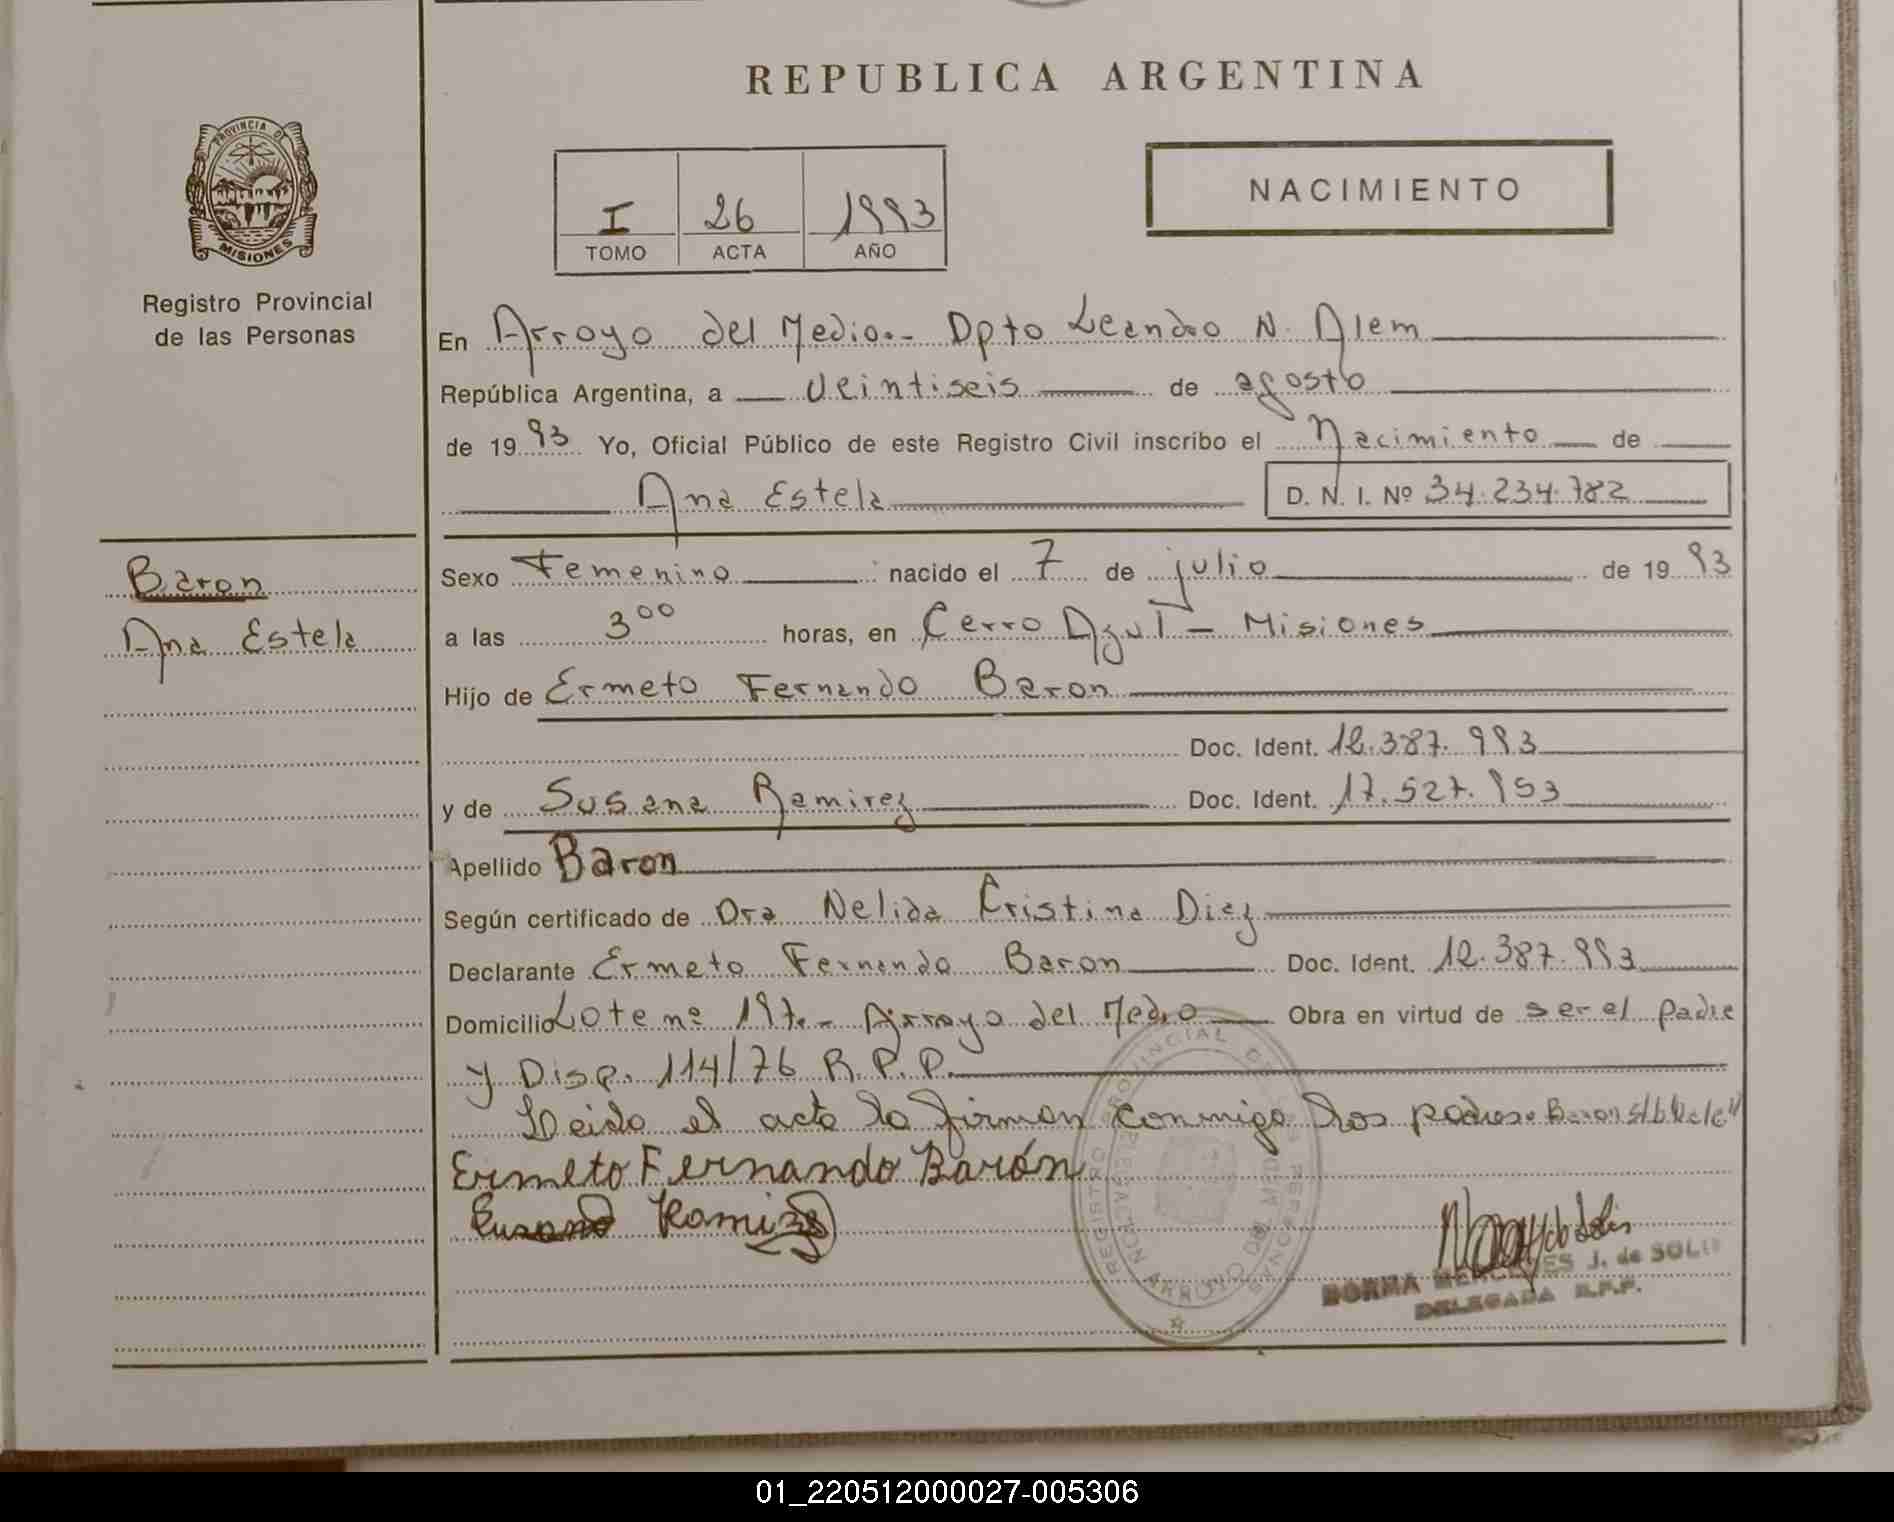 REPUBLICA ARGENTINA
PROVINCIA DE
MISIONES
Registro Provincial
de las Personas
I 26 1993
TOMO ACTA AÑO
NACIMIENTO
En Arroyo del Medio.- Dpto Leandro N. Alem
República Argentina, a veintiseis de agosto
de 1993 Yo, Oficial Público de este Registro Civil inscribo el Nacimiento de
Ana Estela D. N. I. Nº 34.234.782
Baron
Ana Estela
Sexo Femenino nacido el 7 de julio de 1993
a las 3 00 horas, en Cerro Azul - Misiones
Hijo de Ermeto Fernando Baron
Doc. Ident. 12.387.993
y de Susana Ramirez Doc. Ident. 17.527.953
Apellido Baron
Según certificado de Dra Nelida Cristina Diez
Declarante Ermeto Fernando Baron Doc. Ident. 12.387.993
Domicilio Lote nº 197.- Arroyo del Medio Obra en virtud de ser el padre
y Disp. 114/76 R.P.P.
Leida el acta la firman conmigo los padres. Baron s/b Vale"
Ermeto Fernando Barón
Susana Ramirez
REGISTRO PROVINCIAL DE LAS PERSONAS
ARROYO DEL MEDIO
NORMA MERCEDES J. de SOLI
DELEGADA R.P.P.
01_220512000027-005306